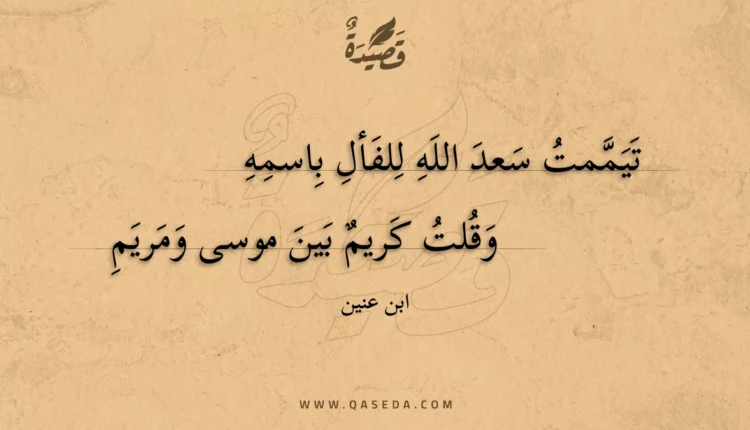 قَصِيْدَةٌ
تَيَمَّمتُ سَعدَ اللَهِ لِلفَألِ بِاسمِهِ
وَقُلتُ كَريمٌ بَينَ موسى وَمَريَمِ
ابن عنين
WWW.QASEDA.COM